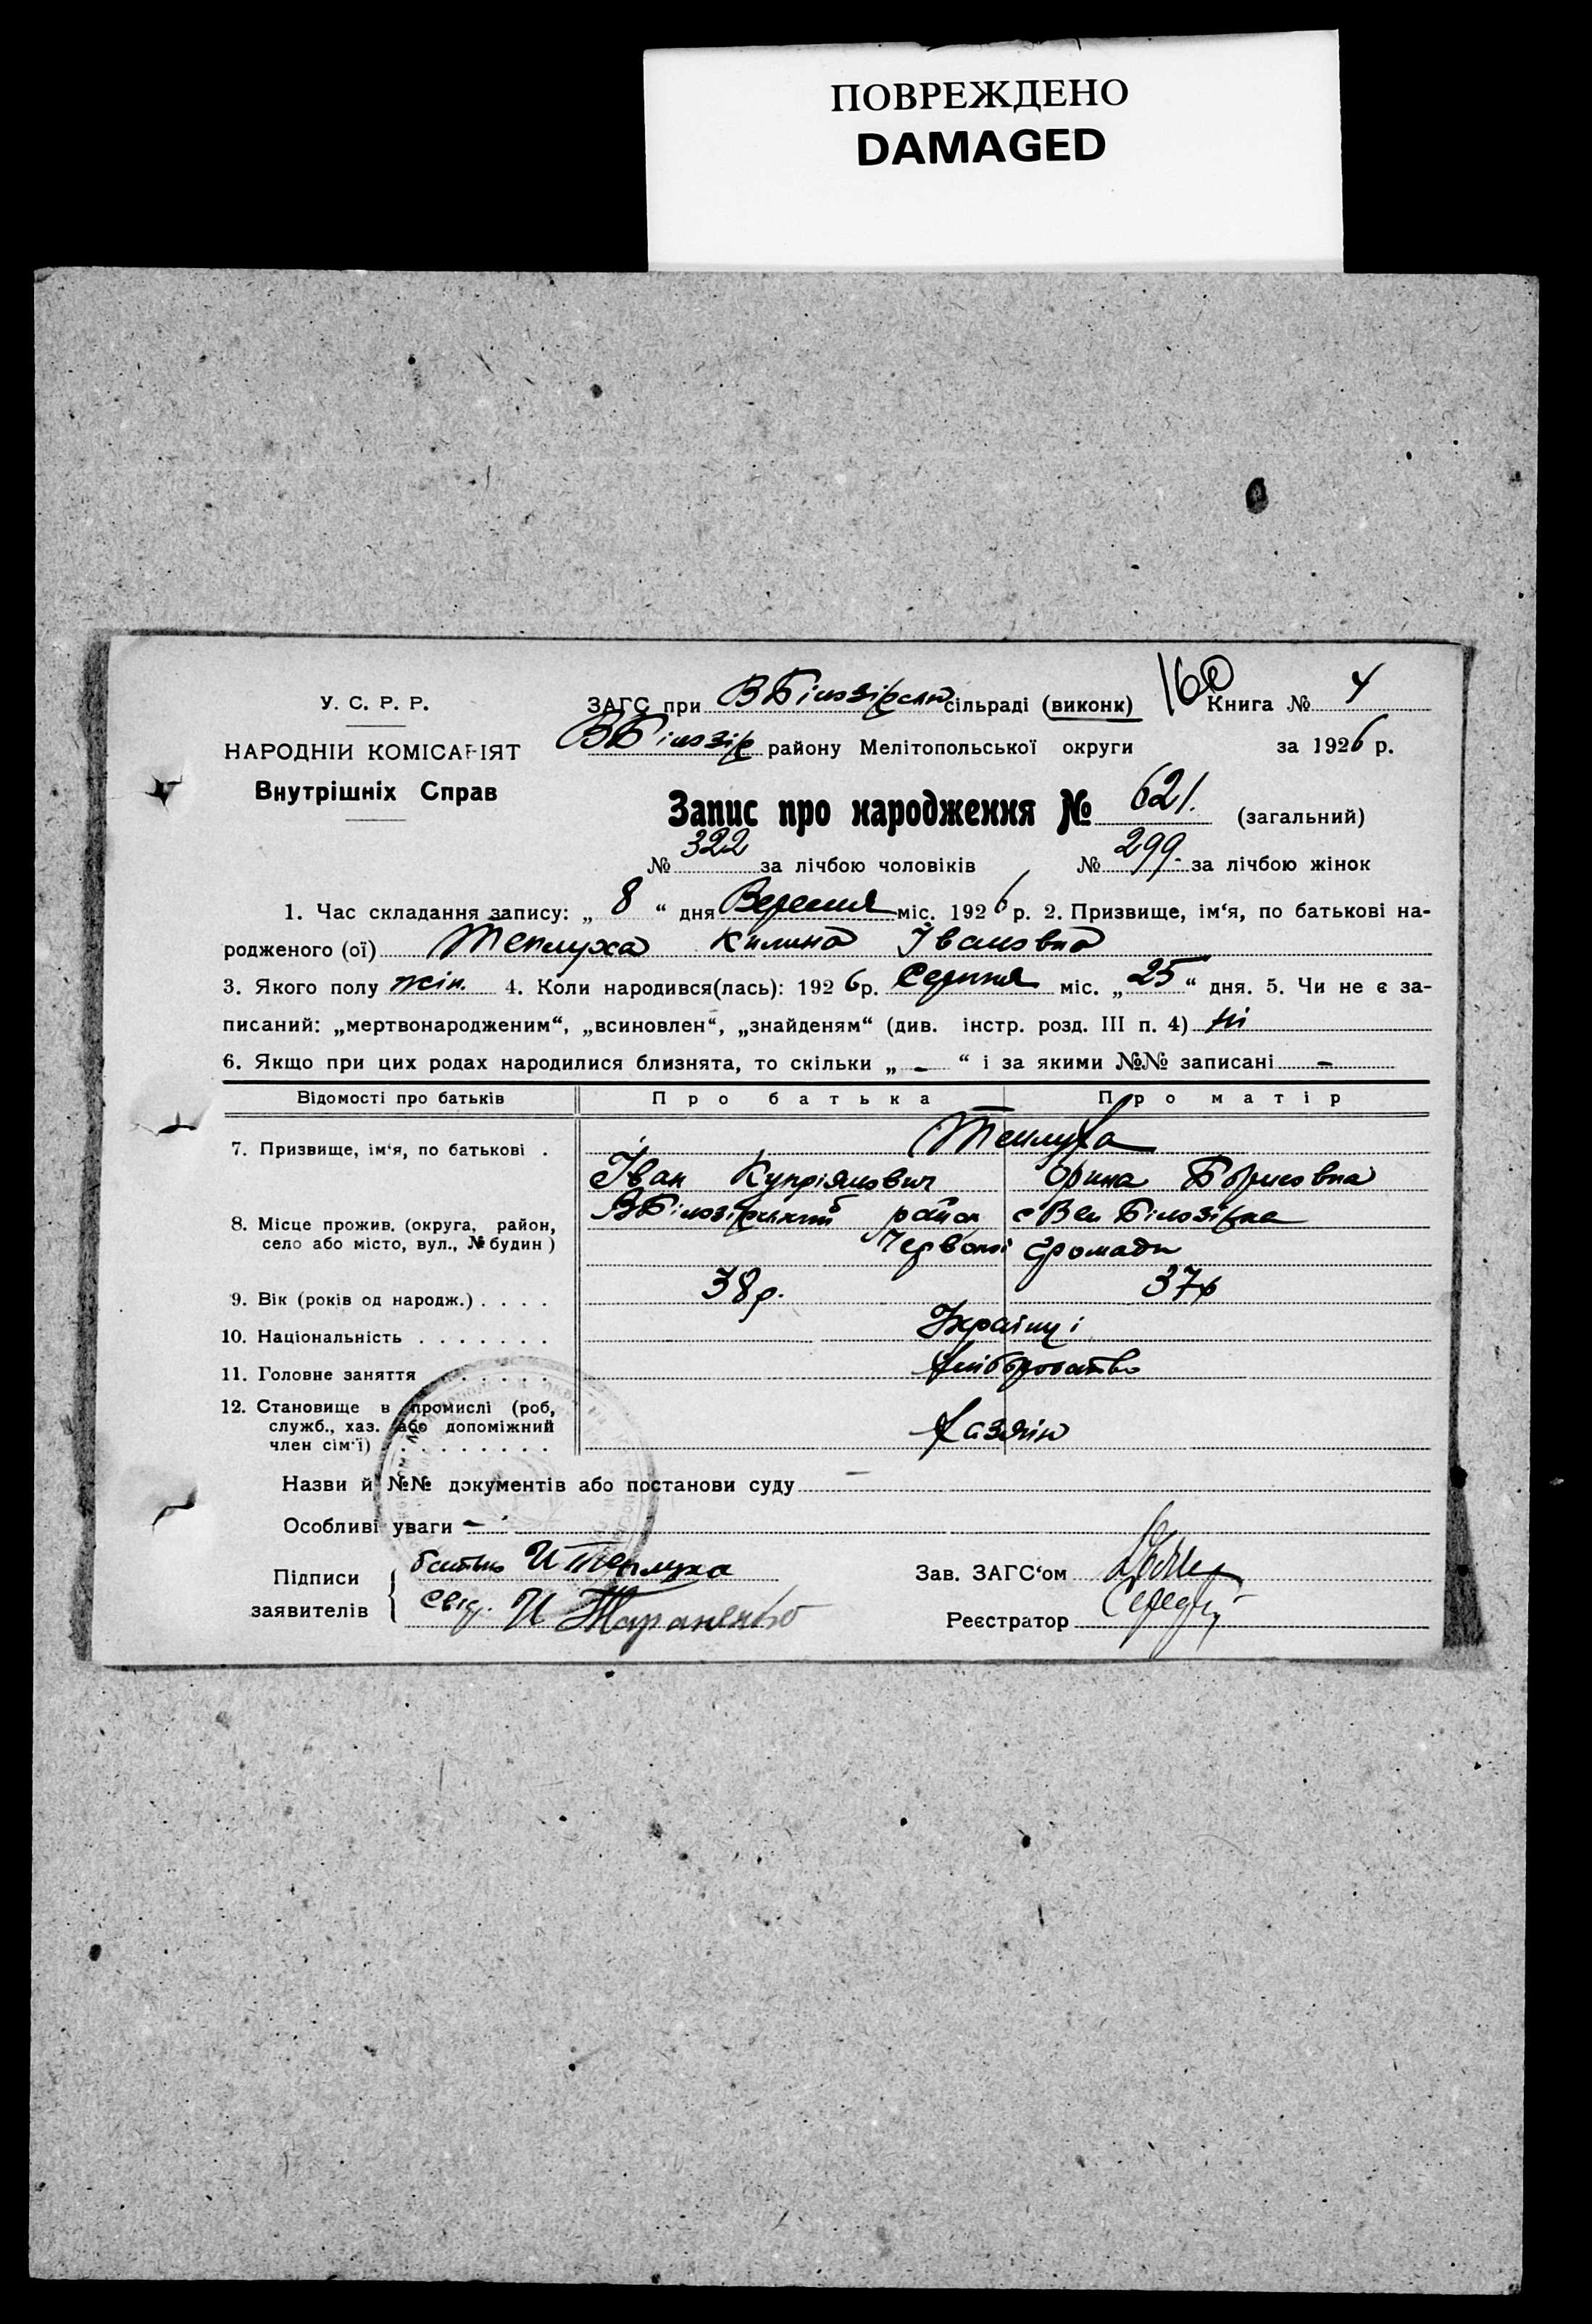 ПОВРЕЖДЕНО
DAMAGED
160
У. С. Р. Р.
ЗАГС при В Білозірськ сільраді (виконк) Книга № 4
НАРОДНІЙ КОМІСАРІЯТ
В Білозір району Мелітопольської округи за 1926 р.
Внутрішніх Справ
Запис про народження № 621. (загальний)
№ 322 за лічбою чоловіків № 299. за лічбою жінок
1. Час складання запису: „ 8 “ дня Вересня міс. 1926 р. 2. Призвище, ім‘я, по батькові на-
родженого (ої) Теплуха Килина Івановна
3. Якого полу жін. 4. Коли народився(лась): 1926 р. Серпня міс. „ 25 “ дня. 5. Чи не є за-
писаний: „мертвонародженим“, „всиновлен“, „знайденям“ (див. інстр. розд. III п. 4) ні
6. Якщо при цих родах народилися близнята, то скільки „ – “ і за якими №№ записані –
Відомості про батьків Про батька Про матір
7. Призвище, ім‘я, по батькові . Теплуха
Іван Купріянович Орина Борисовна
8. Місце прожив. (округа, район,
село або місто, вул., № будин)
В Білозірський район с Вел Білозірка
Червоної Громади
9. Вік (років од народж.) . . . . 38 р. 37 р
10. Національність . . . . . . . Українці
11. Головне заняття . . . . . . Хліборобство
12. Становище в промислі (роб,
служб., хаз. або допоміжний
член сім‘ї) . . . . . . . . . Хазяїн
Назви й №№ документів або постанови суду –
Особливі уваги –
Підписи заявителів
батько И Теплуха
Свід. И Тараненко
Зав. ЗАГС‘ом
Реєстратор